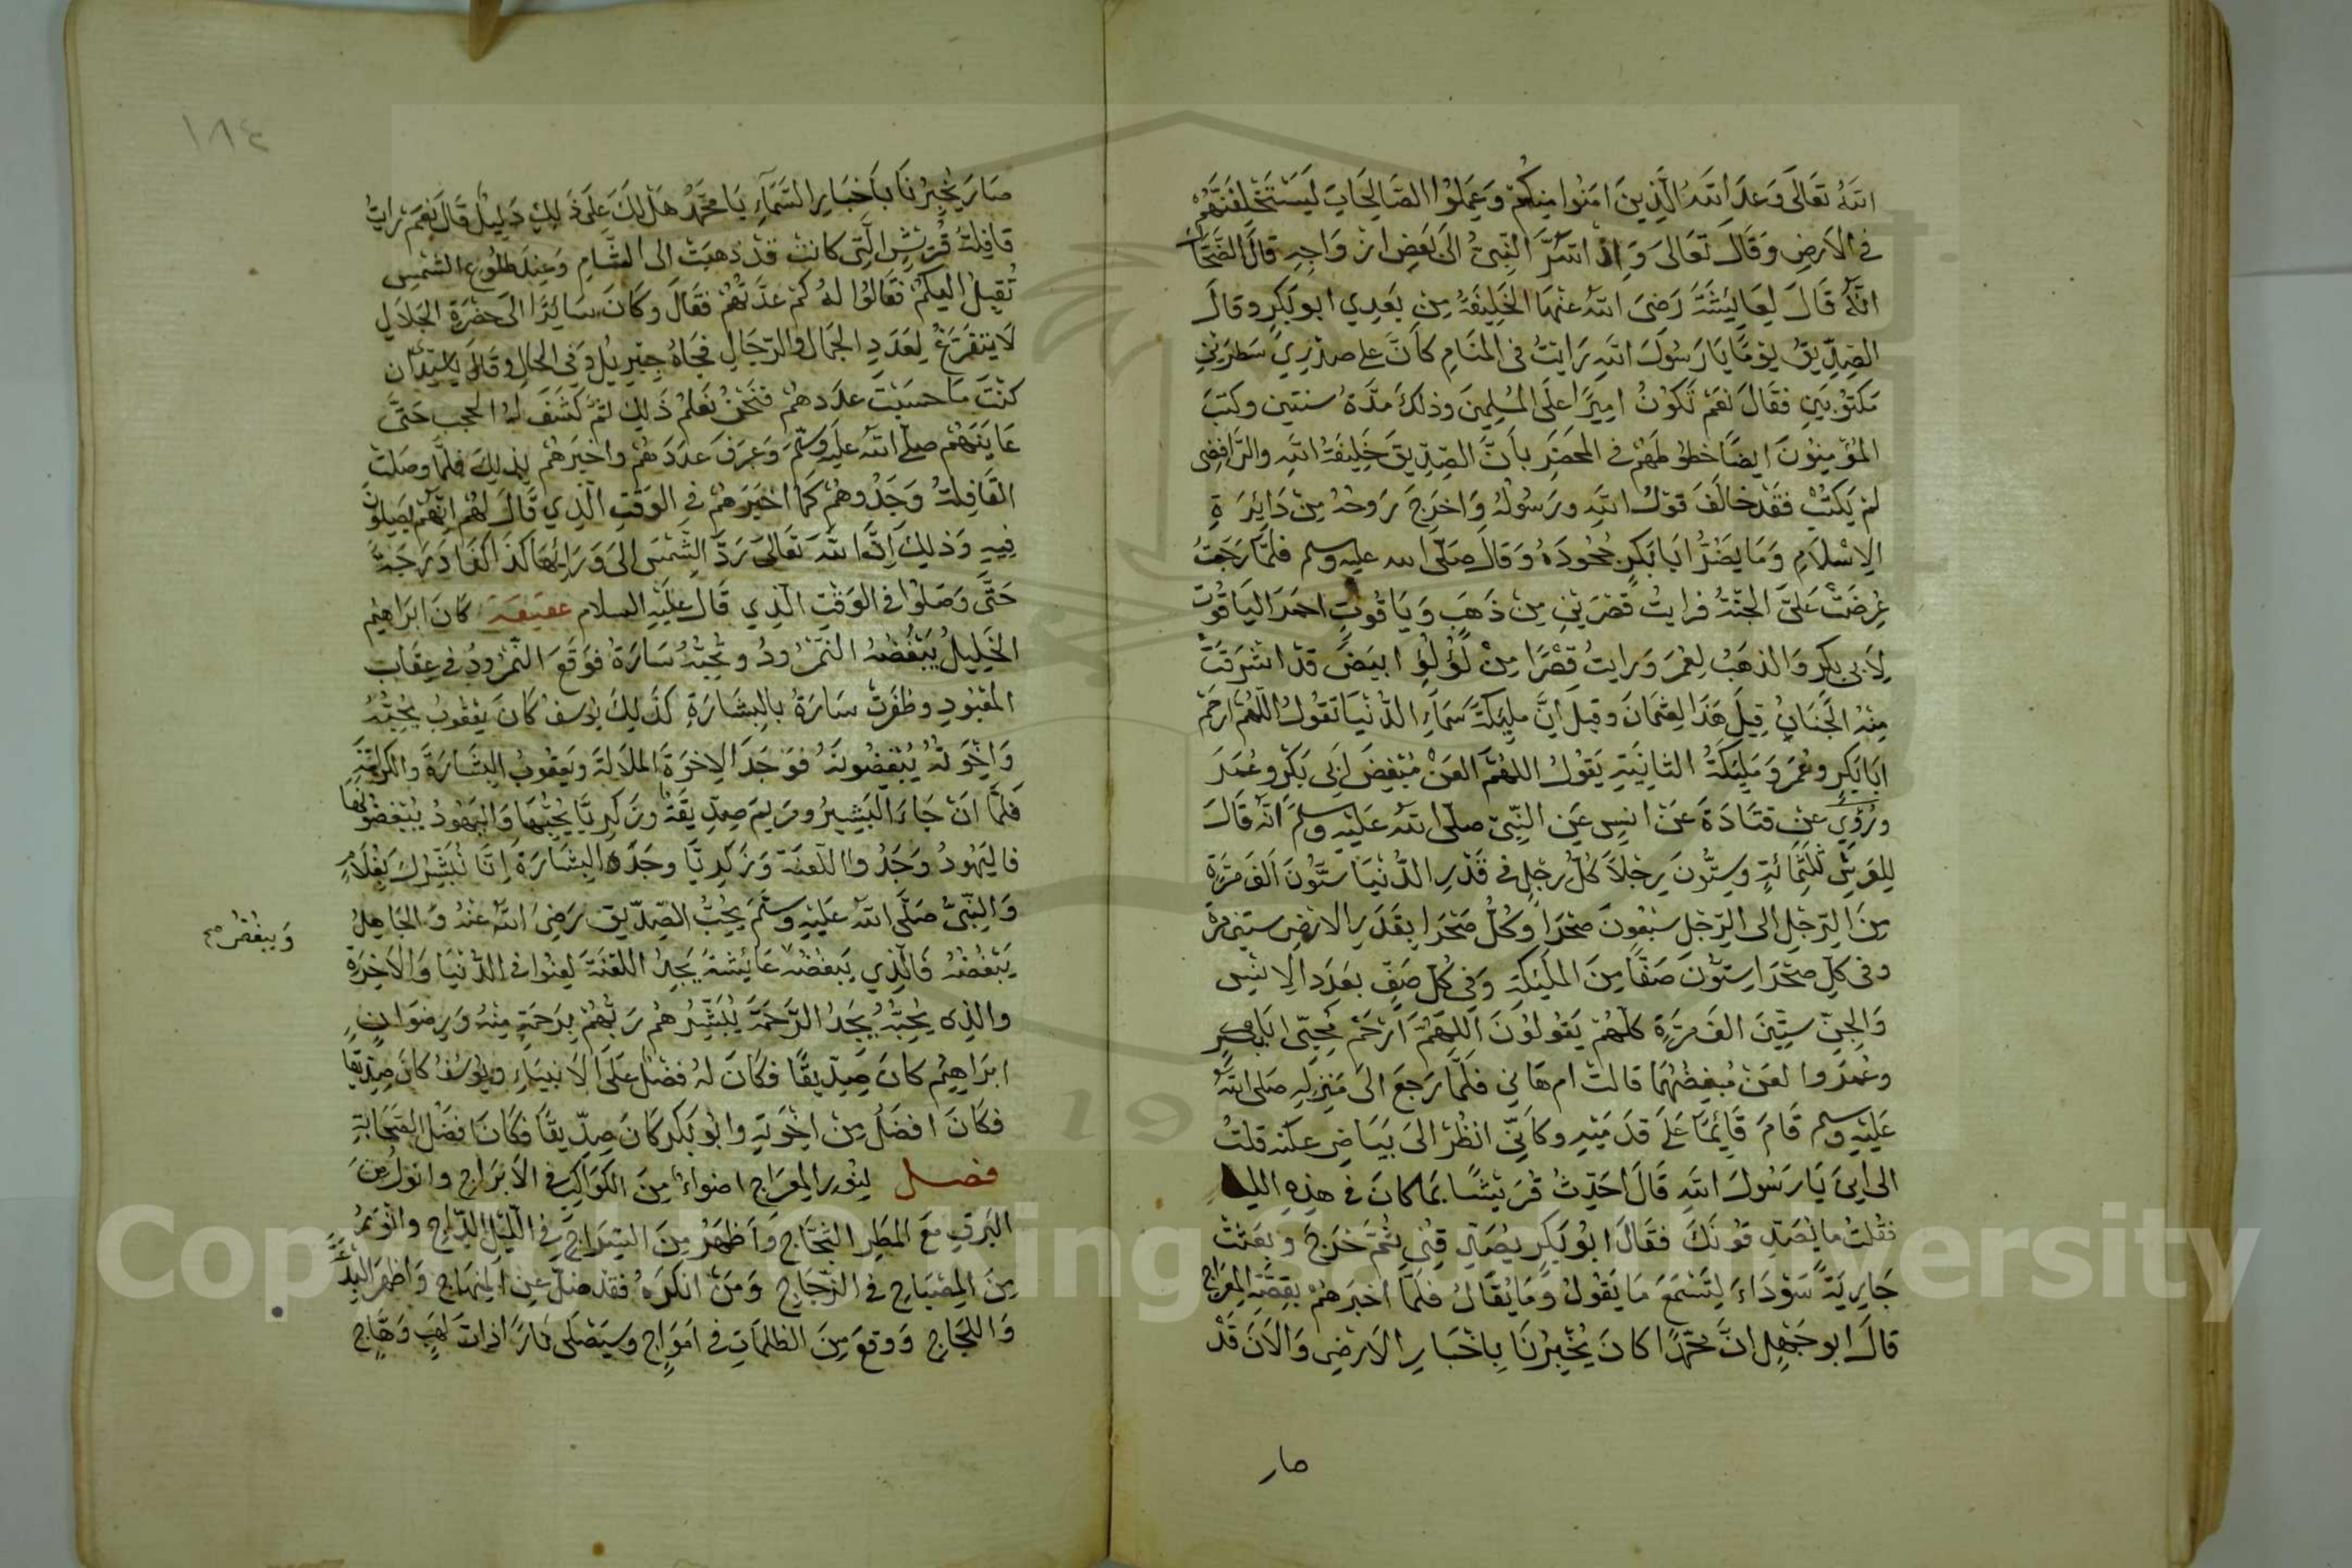 الله تعالى وعد الله الذين امنوا منكم وعملوا الصالحات ليستخلفنهم
في الارض وقال تعالى واذ اسر النبي الى بعض ازواجه قال الضحاك
انه قال لعايشة رضى الله عنها الخليفة من بعدي ابو بكر وقال
الصديق يوما يا رسول الله رايت في المنام كان على صدري سطرين
مكتوبين فقال نعم تكون اميرا على المسلمين وذلك مدة سنتين وكتب
المؤمنون ايضا خطوطهم في المحضر بان الصديق خليفة الله والرافضى
لم يكتب فقد خالف قول الله ورسوله واخرج روحه من دايرة
الاسلام وما يضر ابا بكر جحوده وقال صلى الله عليه وسلم فلما رجعت
عرضت علي الجنة فرايت قصرين من ذهب وياقوت احمر الياقوت
لابى بكر والذهب لعمر ورايت قصرا من لؤلؤ ابيض قد اشرقت
منه الجنان قيل هذا لعثمان وقيل ان مليكة سماء الدنيا تقول اللهم ارحم
ابا بكر وعمر ومليكة الثانية يقول اللهم العن مبغض ابى بكر وعمر
وروي عن قتادة عن انس عن النبي صلى الله عليه وسلم انه قال
للعرش ثلثمائة وستون رجلا كل رجل في قدر الدنيا ستون الف مرة
من الرجل الى الرجل سبعون صحرا وكل صحرا بقدر الارض ستين مرة
وفى كل صحرا ستون صفا من المليكة وفى كل صف بعدد الانس
والجن ستين الف مرة كلهم يقولون اللهم ارحم محبى ابا بكر
وعمر والعن مبغضهما قالت ام هاني فلما رجع الى منزله صلى الله
عليه وسلم قام قائما على قدميه وكاني انظر الى بياض عكنه قلت
الى اين يا رسول الله قال احدث قريشا بما كان في هذه الليلة
فقلت ما يصدقونك فقال ابو بكر يصدقني ثم خرج وبعثت
جارية سوداء لتسمع ما يقول وما يقال فلما اخبرهم بقصة المعراج
قال ابو جهل ان محمدا كان يخبرنا باخبار الارض والان قد
صار
١٨٤
صار يخبرنا باخبار السماء يا محمد هل لك على ذلك دليل قال نعم رايت
قافلة قريش التى كانت قد ذهبت الى الشام وعند طلوع الشمس
تقبل اليكم فقالوا له كم عدتهم فقال وكان سائرا الى حضرة الجلال
لا يتفرغ لعدد الجمال والرجال فجاه جبريل في الحال وقال ان
كنت ما حسبت عددهم فنحن نعلم ذلك ثم كشف له الحجب حتى
عاينهم صلى الله عليه وسلم وعرف عددهم واخبرهم بذلك فلما وصلت
القافلة وجدوهم كما اخبرهم في الوقت الذي قال لهم انهم يصلون
فيه وذلك ان الله تعالى رد الشمس الى ورائها كذا كذا درجة
حتى وصلوا في الوقت الذي قال عليه السلام عقيقة كان ابراهيم
الخليل يبغضه النمرود وتحبه سارة فوقع النمرود في عقاب
المعبود وظفرت سارة بالبشارة كذلك يوسف كان يعقوب يحبه
واخوته يبغضونه فوجد الاخوة الملالة ويعقوب البشارة والكرامة
فلما ان جاء البشير ومريم صديقة وزكريا يحبها واليهود يبغضونها
فاليهود وجدوا اللعنة وزكريا وجد البشارة انا نبشرك بغلام
والنبي صلى الله عليه وسلم يحب الصديق رضى الله عنه والجاهل
يبغضه فالذي يبغضه عائشة يجد اللعنة لعنوا في الدنيا والاخرة
ويبغض
والذى يحبه يجد الرحمة يبشرهم ربهم برحمة منه ورضوان
ابراهيم كان صديقا فكان له فضل على الانبياء ويوسف كان صديقا
فكان افضل من اخوته وابو بكر كان صديقا فكان افضل الصحابة
فصل لنور المعراج اضواء من الكواكب في الابراج وانور من
البرق مع المطر الثجاج واظهر من السراج في الليل الداج وانور
من المصباح في الزجاج ومن انكره فقد ضل عن المنهاج واظهر
واللجاج ووقع من الظلمات في امواج وسيصلى نارا ذات لهب وهاج
Copyright © King Saud University
19